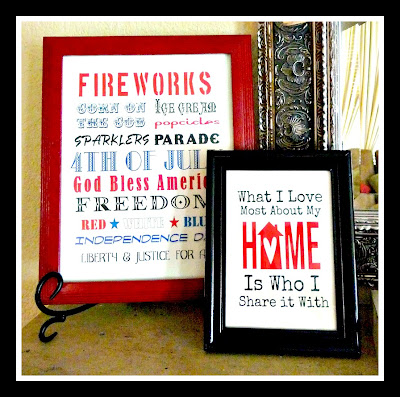 FIREWORKS
CORN ON THE COB
ICE CREAM
popcicles
SPARKLERS PARADE
4TH OF JUL
God Bless Americ
FREEDOM
RED WHITE BLU
INDEPENDENCE D
LIBERTY & JUSTICE FOR A
What I Love
Most About My
HOME
Is Who I
Share it With